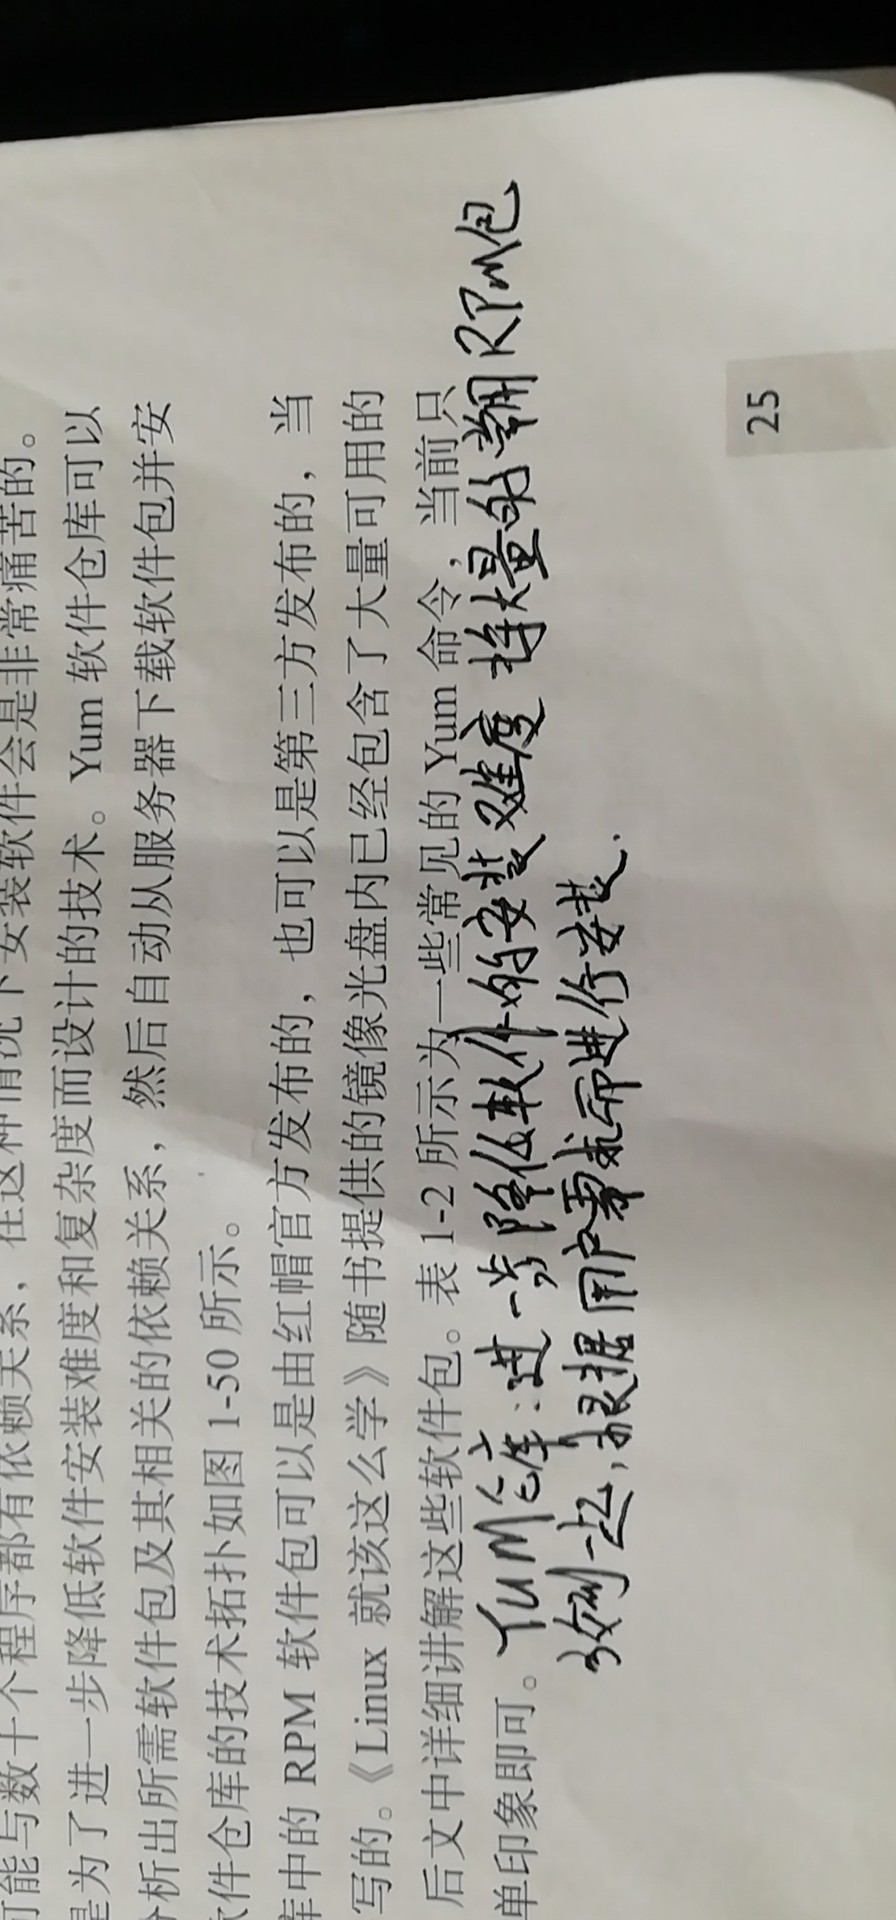 可能与数十个程序都有依赖关系，在这种情况下安装软件会是非常痛苦的。
是为了进一步降低软件安装难度和复杂度而设计的技术。Yum 软件仓库可以
分析出所需软件包及其相关的依赖关系，然后自动从服务器下载软件包并安
软件仓库的技术拓扑如图 1-50 所示。
库中的 RPM 软件包可以是由红帽官方发布的，也可以是第三方发布的，当
写的。《Linux 就该这么学》随书提供的镜像光盘内已经包含了大量可用的
后文中详细讲解这些软件包。表 1-2 所示为一些常见的 Yum 命令，当前只
单印象即可。
YUM仓库:进一步降低软件的安装难度 将大量的常用RPM包
放到一起,根据用户需求而进行安装.
25